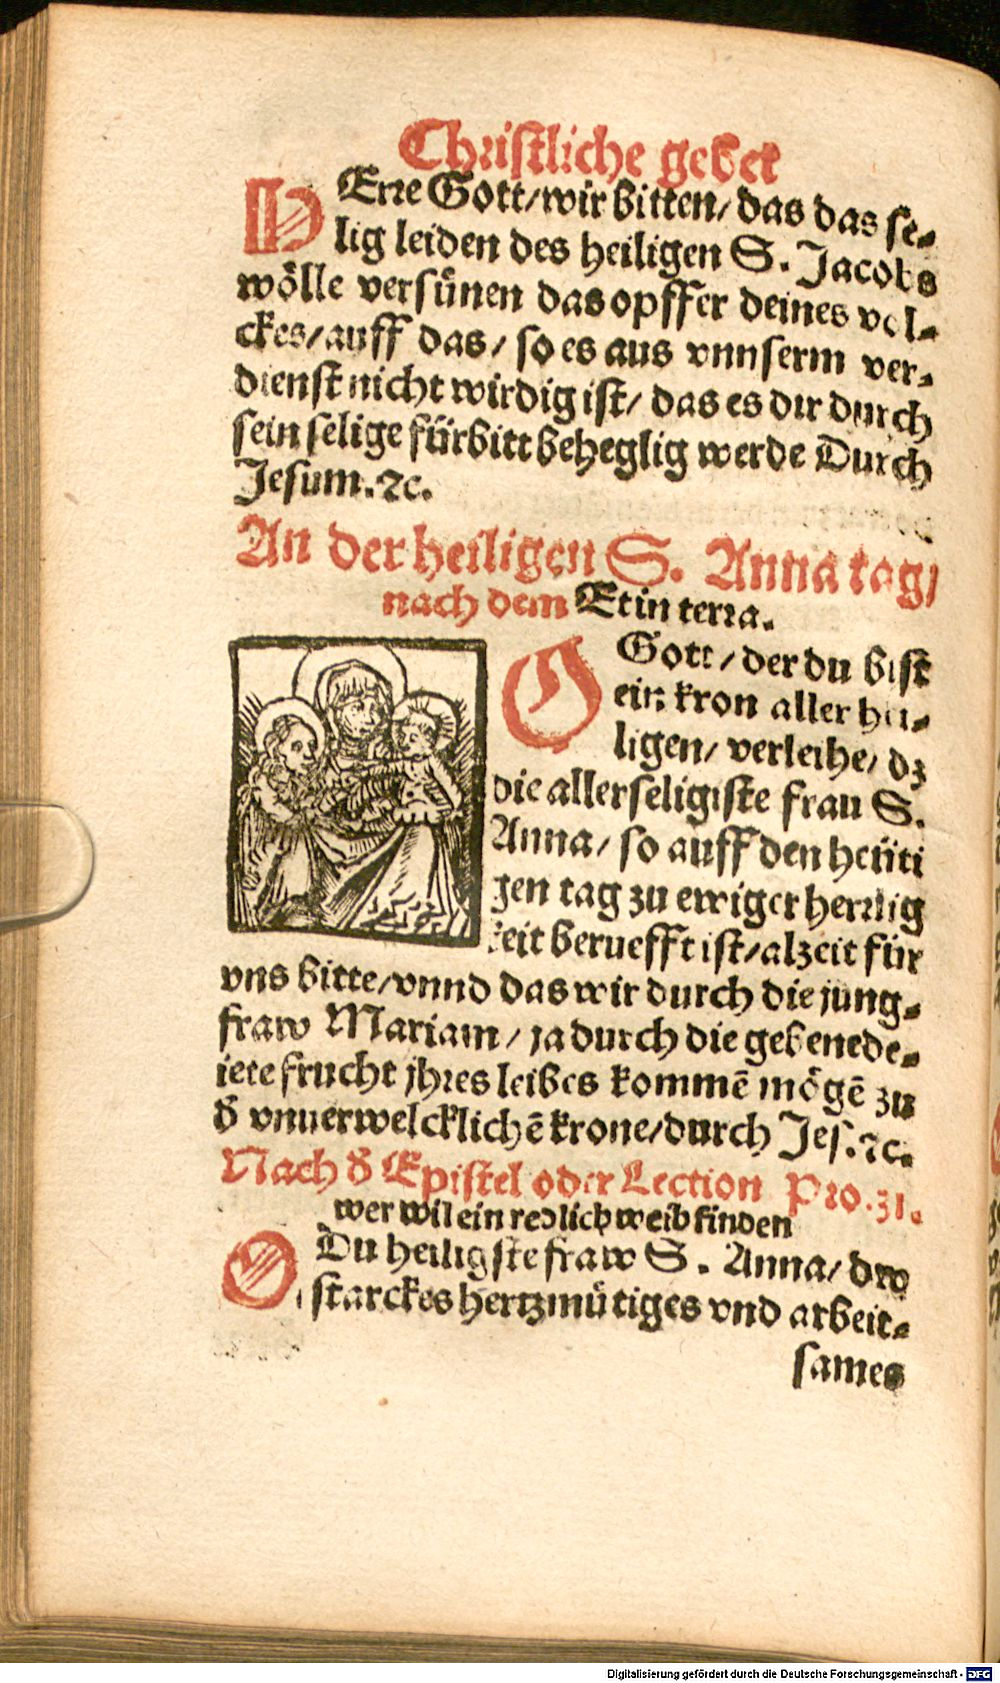 Christliche gebet
HErre Gott/wir bitten/ das das se-
lig leiden des heiligen S. Jacobs
wölle versünen das opffer deines vol-
ckes/auff das/ so es aus vnnserm ver-
dienst nicht wirdig ist/ das es dir durch
sein selige fürbitt beheglig werde Durch
Jesum.ꝛc.
An der heiligen S. Anna tag/
nach dem Et in terra.
O Gott/der du bist
ein kron aller hei-
ligen/ verleihe/ dz
die allerseligiste frau S.
Anna/ so auff den heüti
gen tag zu ewiger herrlig
keit beruefft ist/alzeit für
vns bitte/vnnd das wir durch die jung-
fraw Mariam/ ja durch die gebenede-
iete frucht jhres leibes kommē mögē zu
d̕ vnuerwelcklichē krone/durch Jes.ꝛc.
Nach d̕ Epistel oder Lection Pro.31.
wer wil ein redlich weib finden
O Du heiligste fraw S. Anna/ dw
starckes hertzmütiges vnd arbeit-
sames
Digitalisierung gefördert durch die Deutsche Forschungsgemeinschaft - DFG